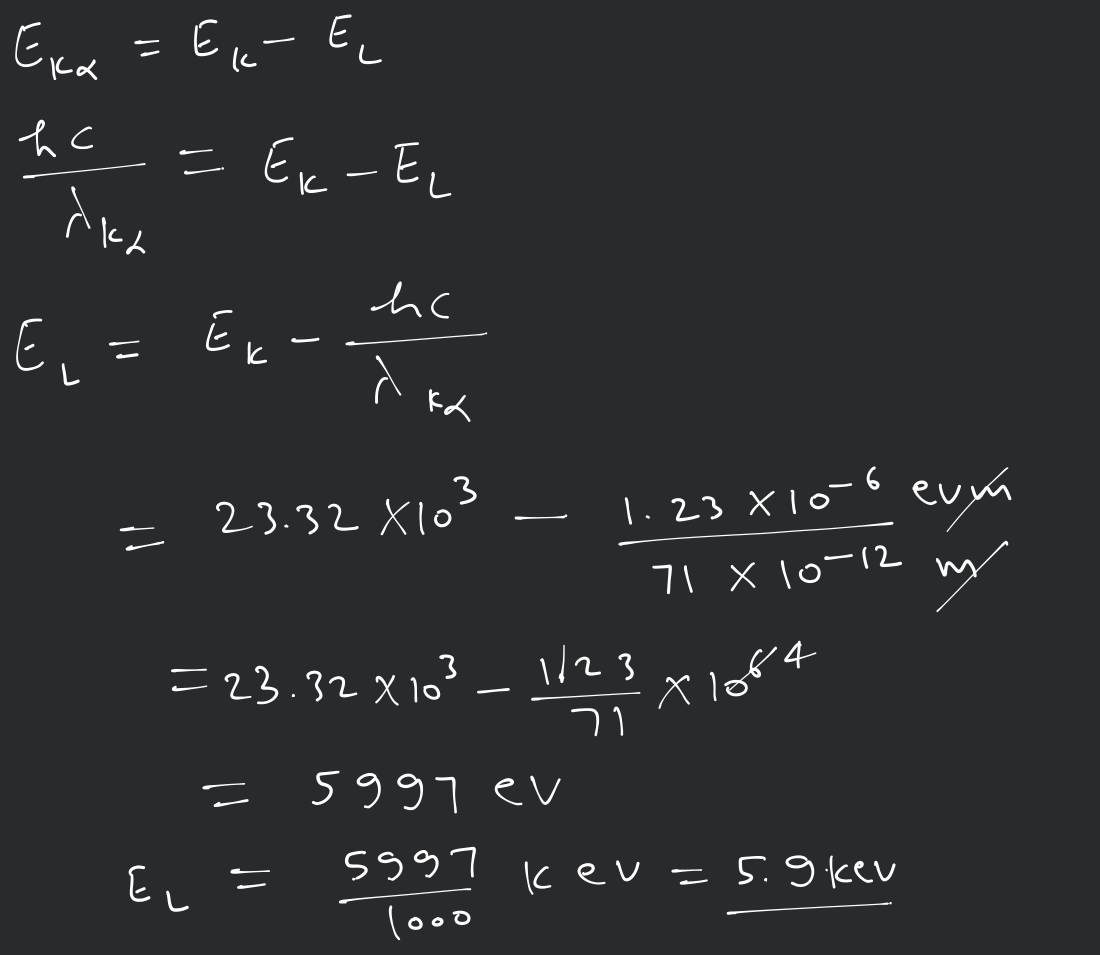 E_Kα = E_K - E_L
hc/λ_Kα = E_K - E_L
E_L = E_K - hc/λ_Kα
= 23.32 × 10^3 - (1.23 × 10^-6 evm)/(71 × 10^-12 m)
= 23.32 × 10^3 - 123/71 × 10^4
= 5997 ev
E_L = 5997/1000 kev = 5.9 kev